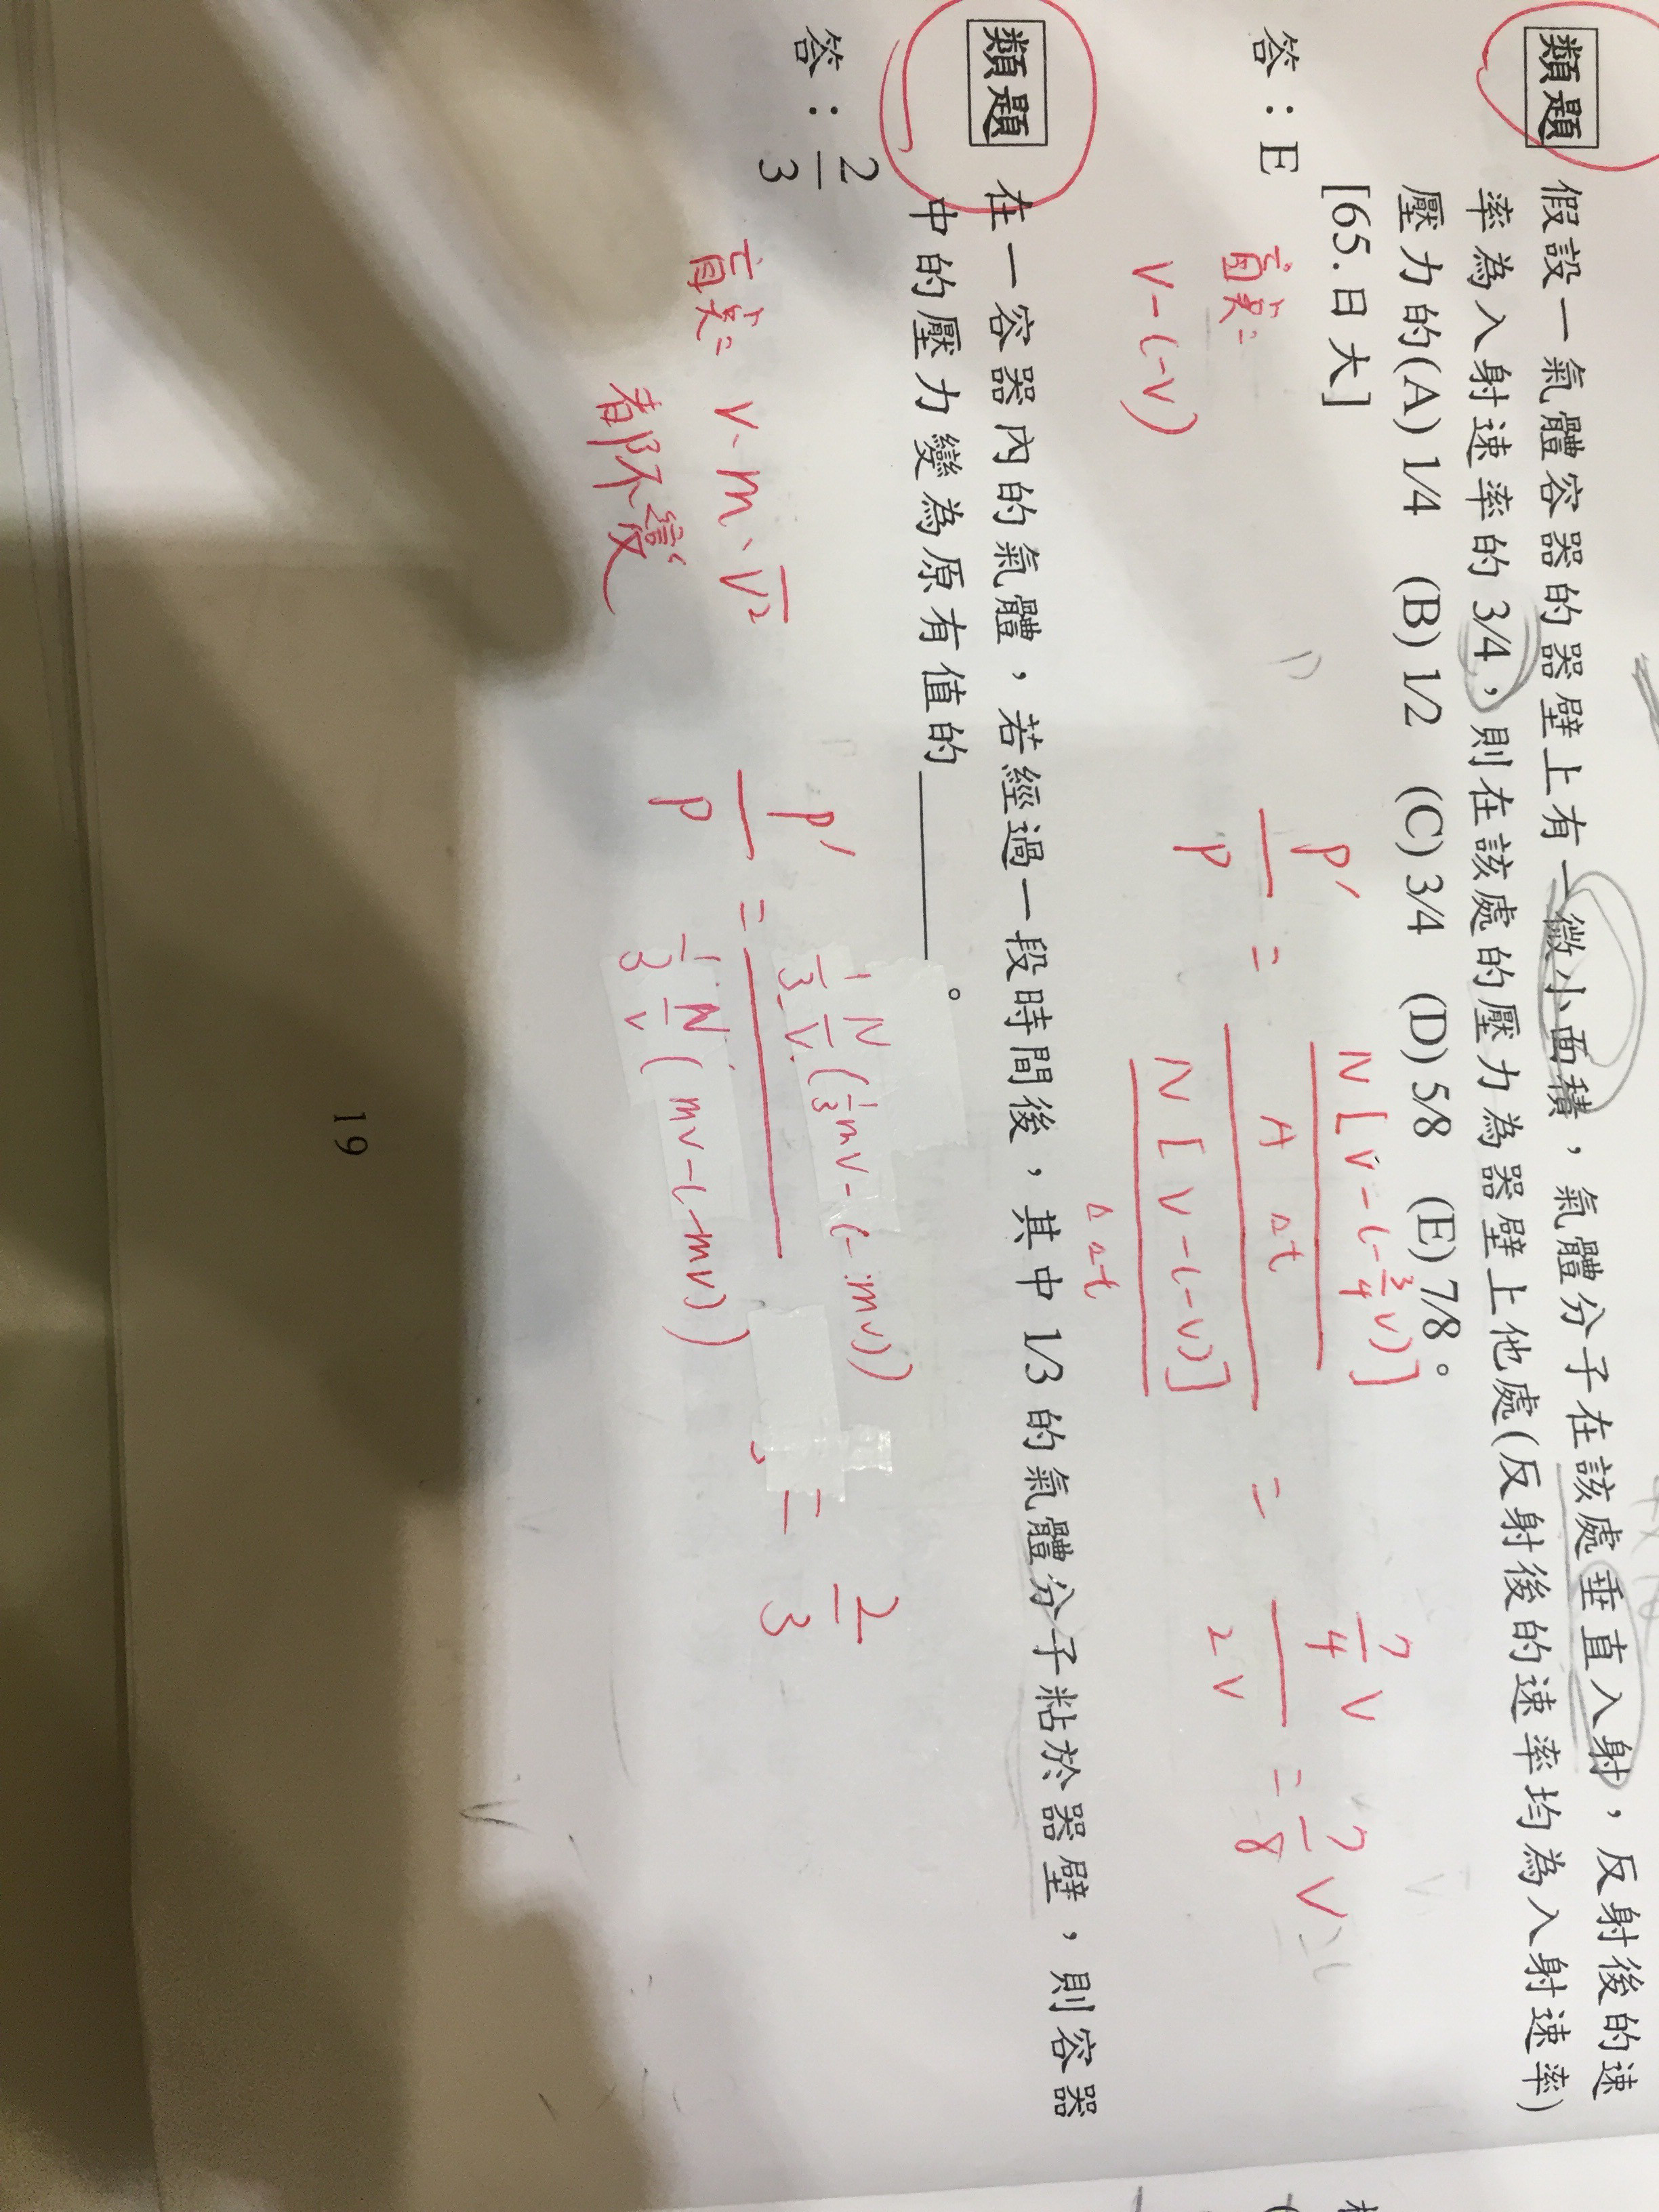 類題 假設一氣體容器的器壁上有一微小面積，氣體分子在該處垂直入射，反射後的速
率為入射速率的 3/4，則在該處的壓力為器壁上他處(反射後的速率均為入射速率)
壓力的(A) 1/4 (B) 1/2 (C) 3/4 (D) 5/8 (E) 7/8。
[65.日大]
答：E
盲点：
V-(-V)
P'/P = N[V-(-3/4 V)]/A Δt / N[V-(-V)]/Δ Δt = 7/4 V / 2V = 7/8 V
類題 在一容器內的氣體，若經過一段時間後，其中 1/3 的氣體分子粘於器壁，則容器
中的壓力變為原有值的______。
答：2/3
盲点： V、m、V²
都不變
P'/P = 1/3 N/V (1/3 mV-(-mV)) / 1/3 N/V (mV-(-mV)) = 2/3
19